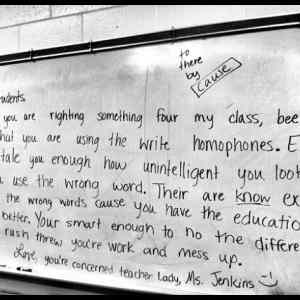 to
there
by
cause
udents,
you are righting something four my class, bee
hat you are using the write homophones. E
tale you enough how unintelligent you loot
u use the wrong word. Their are know ex
the wrong words cause you have the educatio
better. Your smart enough to no the differe
rush threw you're work and mess up.
Love, you're concerned teacher lady, Ms. Jenkins